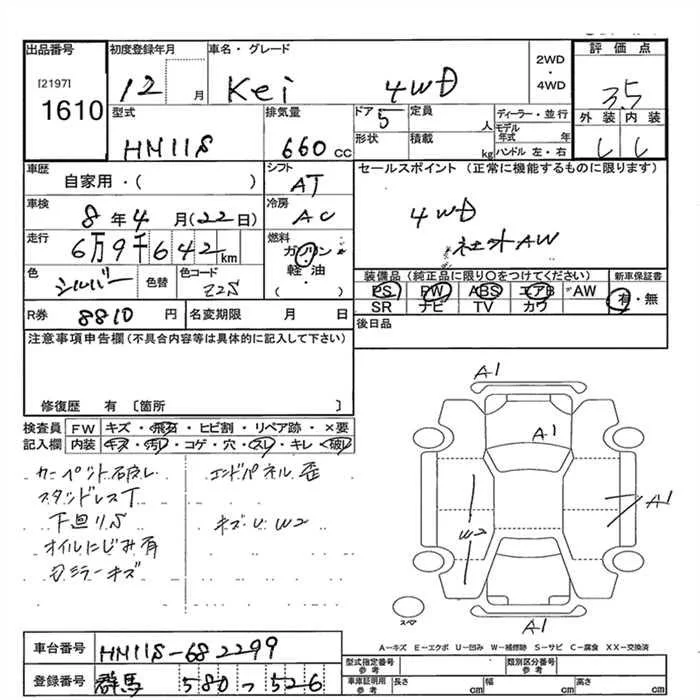 出品番号
[2197]
1610
初度登録年月
12 月
車名・グレード
Kei 4WD
2WD
・
4WD
評価点
3.5
型式
HN11S
排気量
660 cc
ドア
5
定員
人
形状
積載
kg
ディーラー・並行
モデル年式 年
ハンドル 左・右
外装
内装
車歴
自家用・( )
シフト
AT
セールスポイント (正常に機能するものに限ります)
4WD
社外AW
車検
8 年 4 月 (22日)
冷房
AC
走行
6万9千642 km
燃料
ガソリン
軽油
( )
色
シルバー
色替
色コード
Z2S
装備品 (純正品に限り○をつけてください)
PS PW ABS エアB AW
SR ナビ TV カワ
新車保証書
有・無
R券
8810 円
名変期限 月 日
後日品
注意事項申告欄 (不具合内容等は具体的に記入して下さい)
修復歴 有 [箇所 ]
検査員
記入欄
FW
キズ・飛石・ヒビ割・リペア跡・×要
内装
キズ・汚れ・コゲ・穴・スレ・キレ・破れ
カーペット破レ
スタッドレスT
下廻りS
オイルにじみ有
Dミラーキズ
エンドパネル歪
キズ・U W2
A1
A1
A1
W2
A1
スペア
A-キズ E-エクボ U-凹み W-補修跡 S-サビ C-腐食 XX-交換済
車台番号
HN11S-682299
登録番号
群馬 580 つ 526
型式指定番号
参考
類別区分番号
参考
車庫証明用
参考
長さ cm
幅 cm
高さ cm